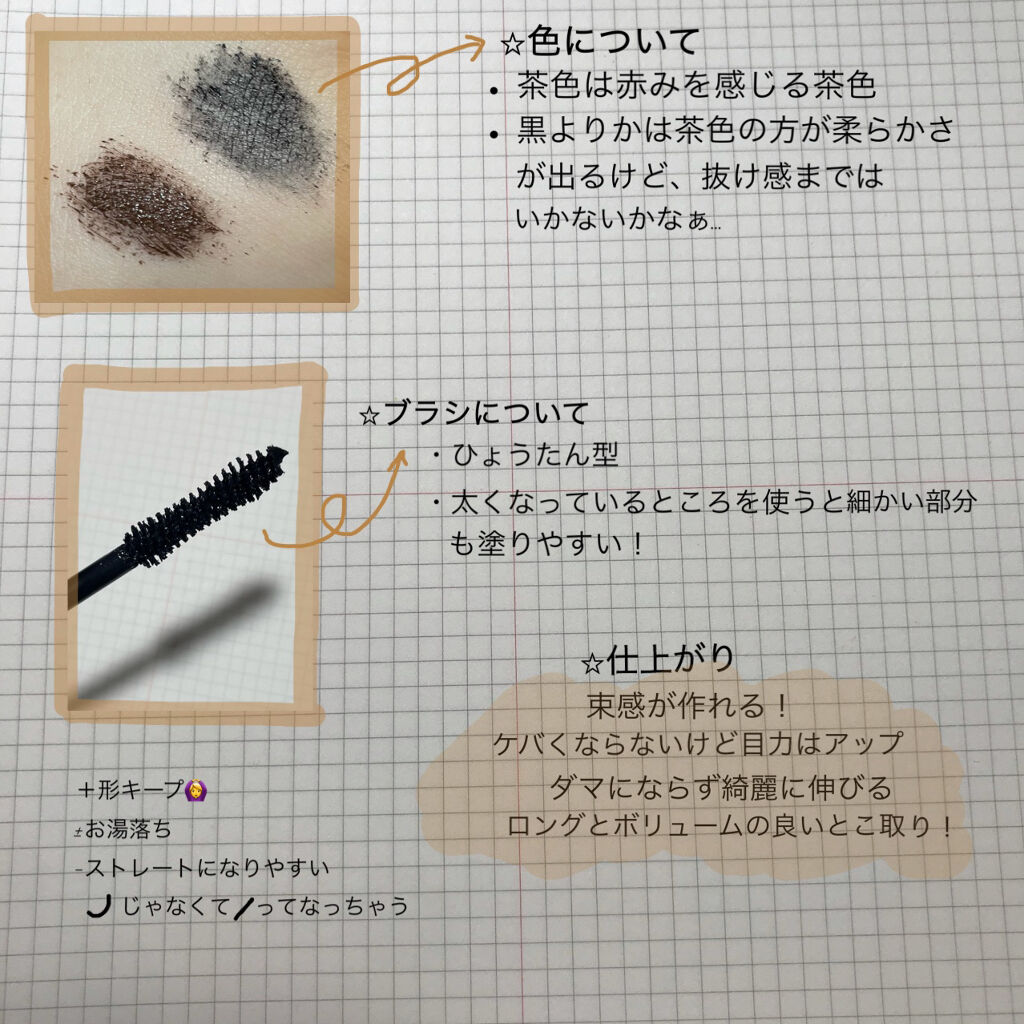 ☆色について
• 茶色は赤みを感じる茶色
• 黒よりかは茶色の方が柔らかさ
が出るけど、抜け感までは
いかないかなぁ…
☆ブラシについて
・ひょうたん型
・太くなっているところを使うと細かい部分
も塗りやすい！
☆仕上がり
束感が作れる！
ケバくならないけど目力はアップ
ダマにならず綺麗に伸びる
ロングとボリュームの良いとこ取り！
＋形キープ🙆‍♀️
±お湯落ち
-ストレートになりやすい
じゃなくて/ってなっちゃう